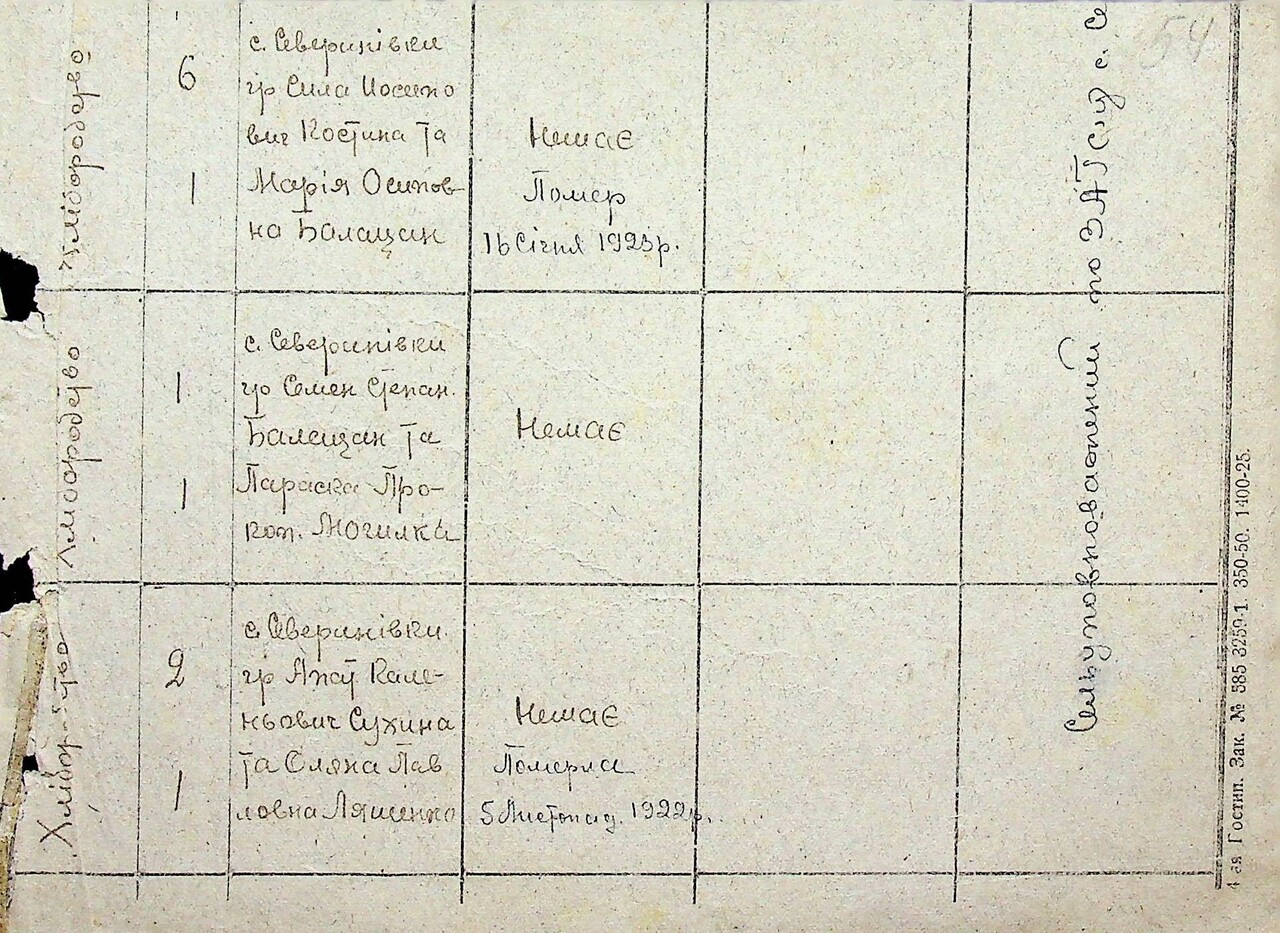 54
Хліборобство
6
1
с. Северинівки
гр Сила Иосипо
вич Костина та
Марія Осипов-
на Балацан
Немає
Помер
16 Січня 1923 р.
Хліборобство
1
1
с. Северинівки
гр Семен Степан.
Балацан та
Параска Про-
коп. Могилка
Немає
Хлібор-тво
2
1
с. Северинівки
гр Апат Кале-
ньович Сухина
та Оляна Пав
ловна Ляшенко
Немає
Померла
5 Листопад. 1922 р.
по ЗАГСу с. Се
4-ая Гостип. Зак. № 585 3259-1. 350-50. 1400-25.